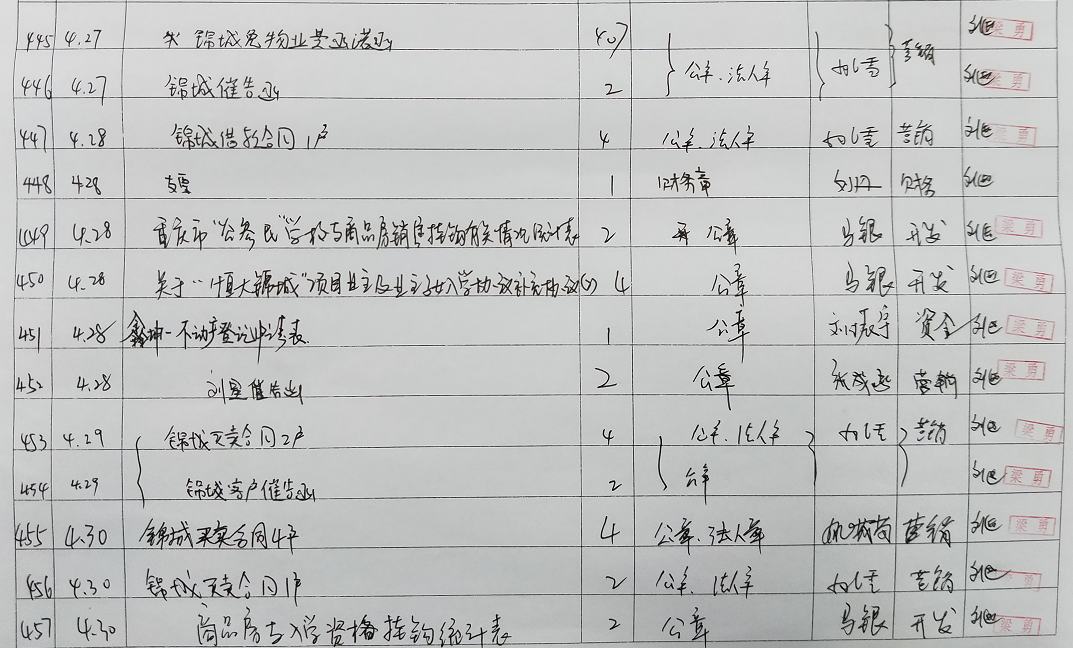 445 4.27 锦城免物业费承诺函 40 梁勇
446 4.27 锦城催告函 2 公章、法人章 营销 梁勇
447 4.28 锦城借款合同1户 4 公章、法人章 营销 梁勇
448 4.28 支票 1 财务章 刘丹 财务
449 4.28 重庆市"公务民"学校与商品房销售挂钩有关情况统计表 2 公章 马银 开发 梁勇
450 4.28 关于"恒大锦城"项目业主及业主子女入学协议补充协议 4 公章 马银 开发 梁勇
451 4.28 鑫坤-不动产登记申请表 1 公章 资金 梁勇
452 4.28 刘星催告函 2 公章 营销 梁勇
453 4.29 锦城买卖合同2户 4 公章、法人章 营销 梁勇
454 4.29 锦城客户催告函 2 公章 梁勇
455 4.30 锦城买卖合同4户 4 公章、法人章 营销 梁勇
456 4.30 锦城买卖合同1户 2 公章、法人章 营销 梁勇
457 4.30 商品房与入学资格挂钩统计表 2 公章 马银 开发 梁勇